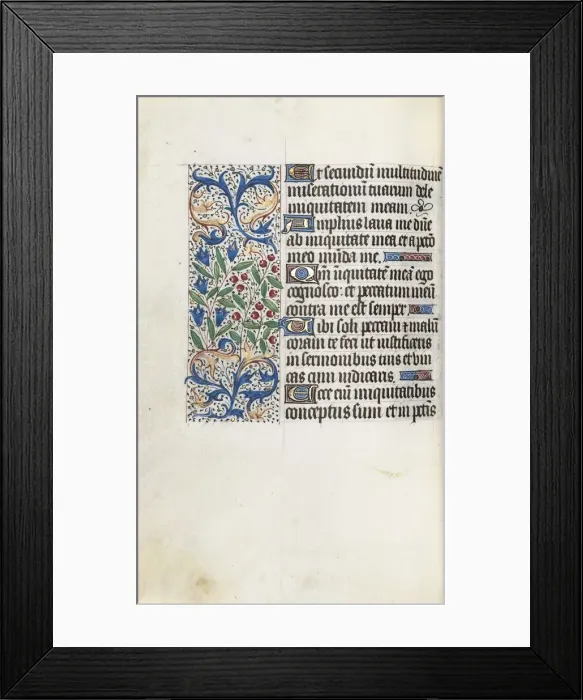 Et secundũ multitudinẽ
miserationũ tuarum dele
iniquitatem meam.
Amplius laua me dñe
ab iniquitate mea et a pctõ
meo mũda me.
Qm̃ iniquitatẽ meã ego
cognosco: et peccatum meũ
contra me est semper
Tibi soli peccaui ⁊ malũ
coram te feci ut iustificeris
in sermonibus tuis et vin
cas cum iudicaris.
Ecce eñi iniquitatibus
conceptus sum et in pctis